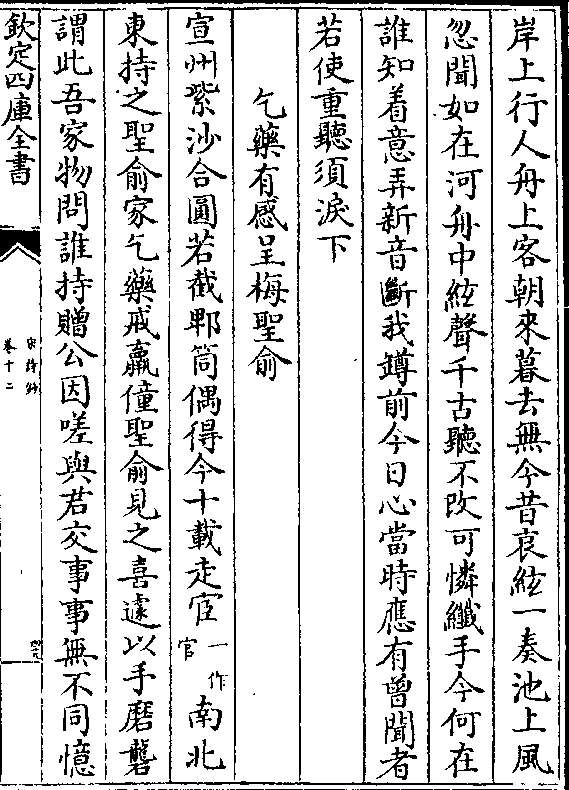 岸上行人舟上客朝來暮去無今昔哀絃一奏池上風
忽聞如在河舟中絃聲千古聽不改可憐纖手今何在
誰知着意弄新音斷我罇前今日心當時應有曾聞者
若使重聽須淚下
乞藥有感呈梅聖俞
宣州紫沙合圓若截鄲筒偶得今十載走宦一作官南北
東持之聖俞家乞藥戒羸僮聖俞見之喜遽以手磨礱
謂此吾家物問誰持贈公因嗟與君交事事無不同憶
欽定四庫全書
宋詩鈔
卷十二